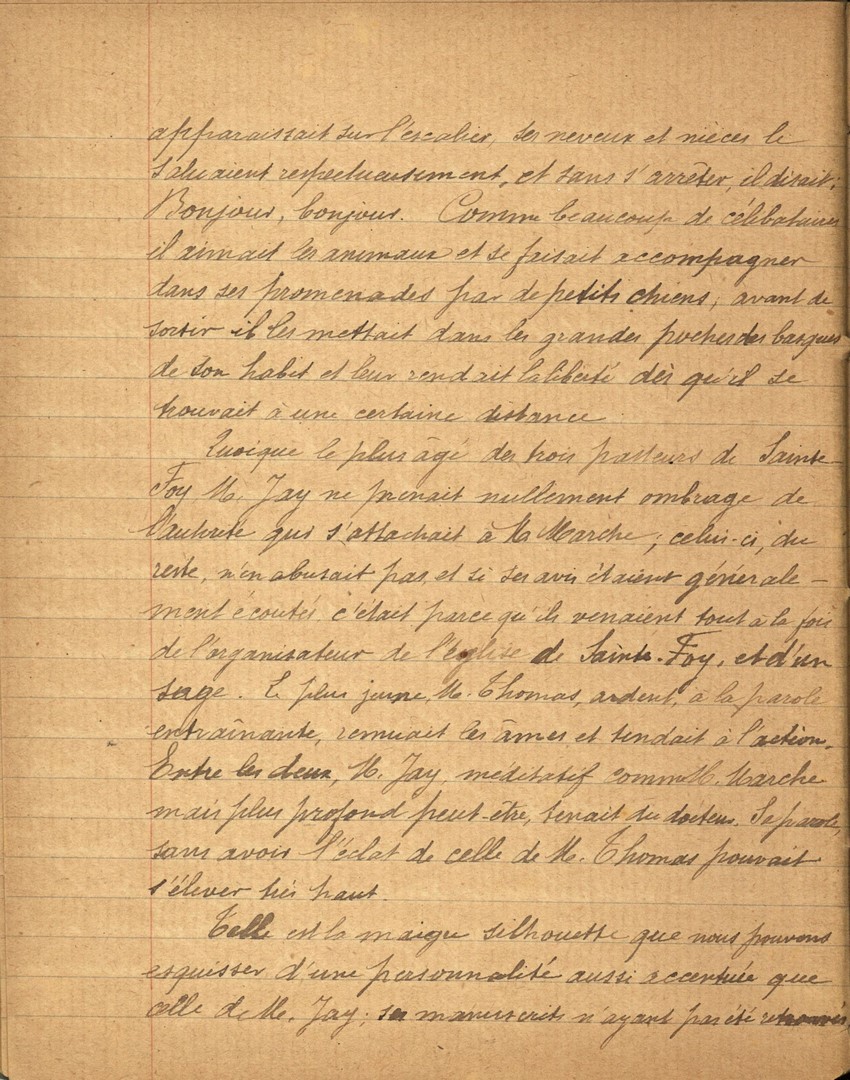 apparaissait sur l'escalier, ses neveux et nièces le
saluaient respectueusement, et sans s'arrêter, il disait:
Bonjour, bonjour. Comme beaucoup de célibataires
il aimait les animaux et se faisait accompagner
dans ses promenades par de petits chiens; avant de
sortir il les mettait dans les grandes poches des basques
de son habit et leur rendait la liberté dès qu'il se
trouvait à une certaine distance
Quoique le plus âgé des trois pasteurs de Sainte-
Foy M. Jay ne prenait nullement ombrage de
l'autorité qui s'attachait à M. Marche; celui-ci, du
reste, n'en abusait pas, et si ses avis étaient générale-
ment écoutés c'était parce qu'ils venaient tout à la fois
de l'organisateur de l'Eglise de Sainte-Foy, et d'un
sage. Le plus jeune, M. Thomas, ardent, à la parole
entraînante, remuait les âmes et tendait à l'action.
Entre les deux, M. Jay, méditatif comme M. Marche
mais plus profond peut-être, tenait du docteur. Sa parole,
sans avoir l'éclat de celle de M. Thomas pouvait
s'élever très haut.
Telle est la maigre silhouette que nous pouvons
esquisser d'une personnalité aussi accentuée que
celle de M. Jay; ses manuscrits n'ayant pas été retrouvés,